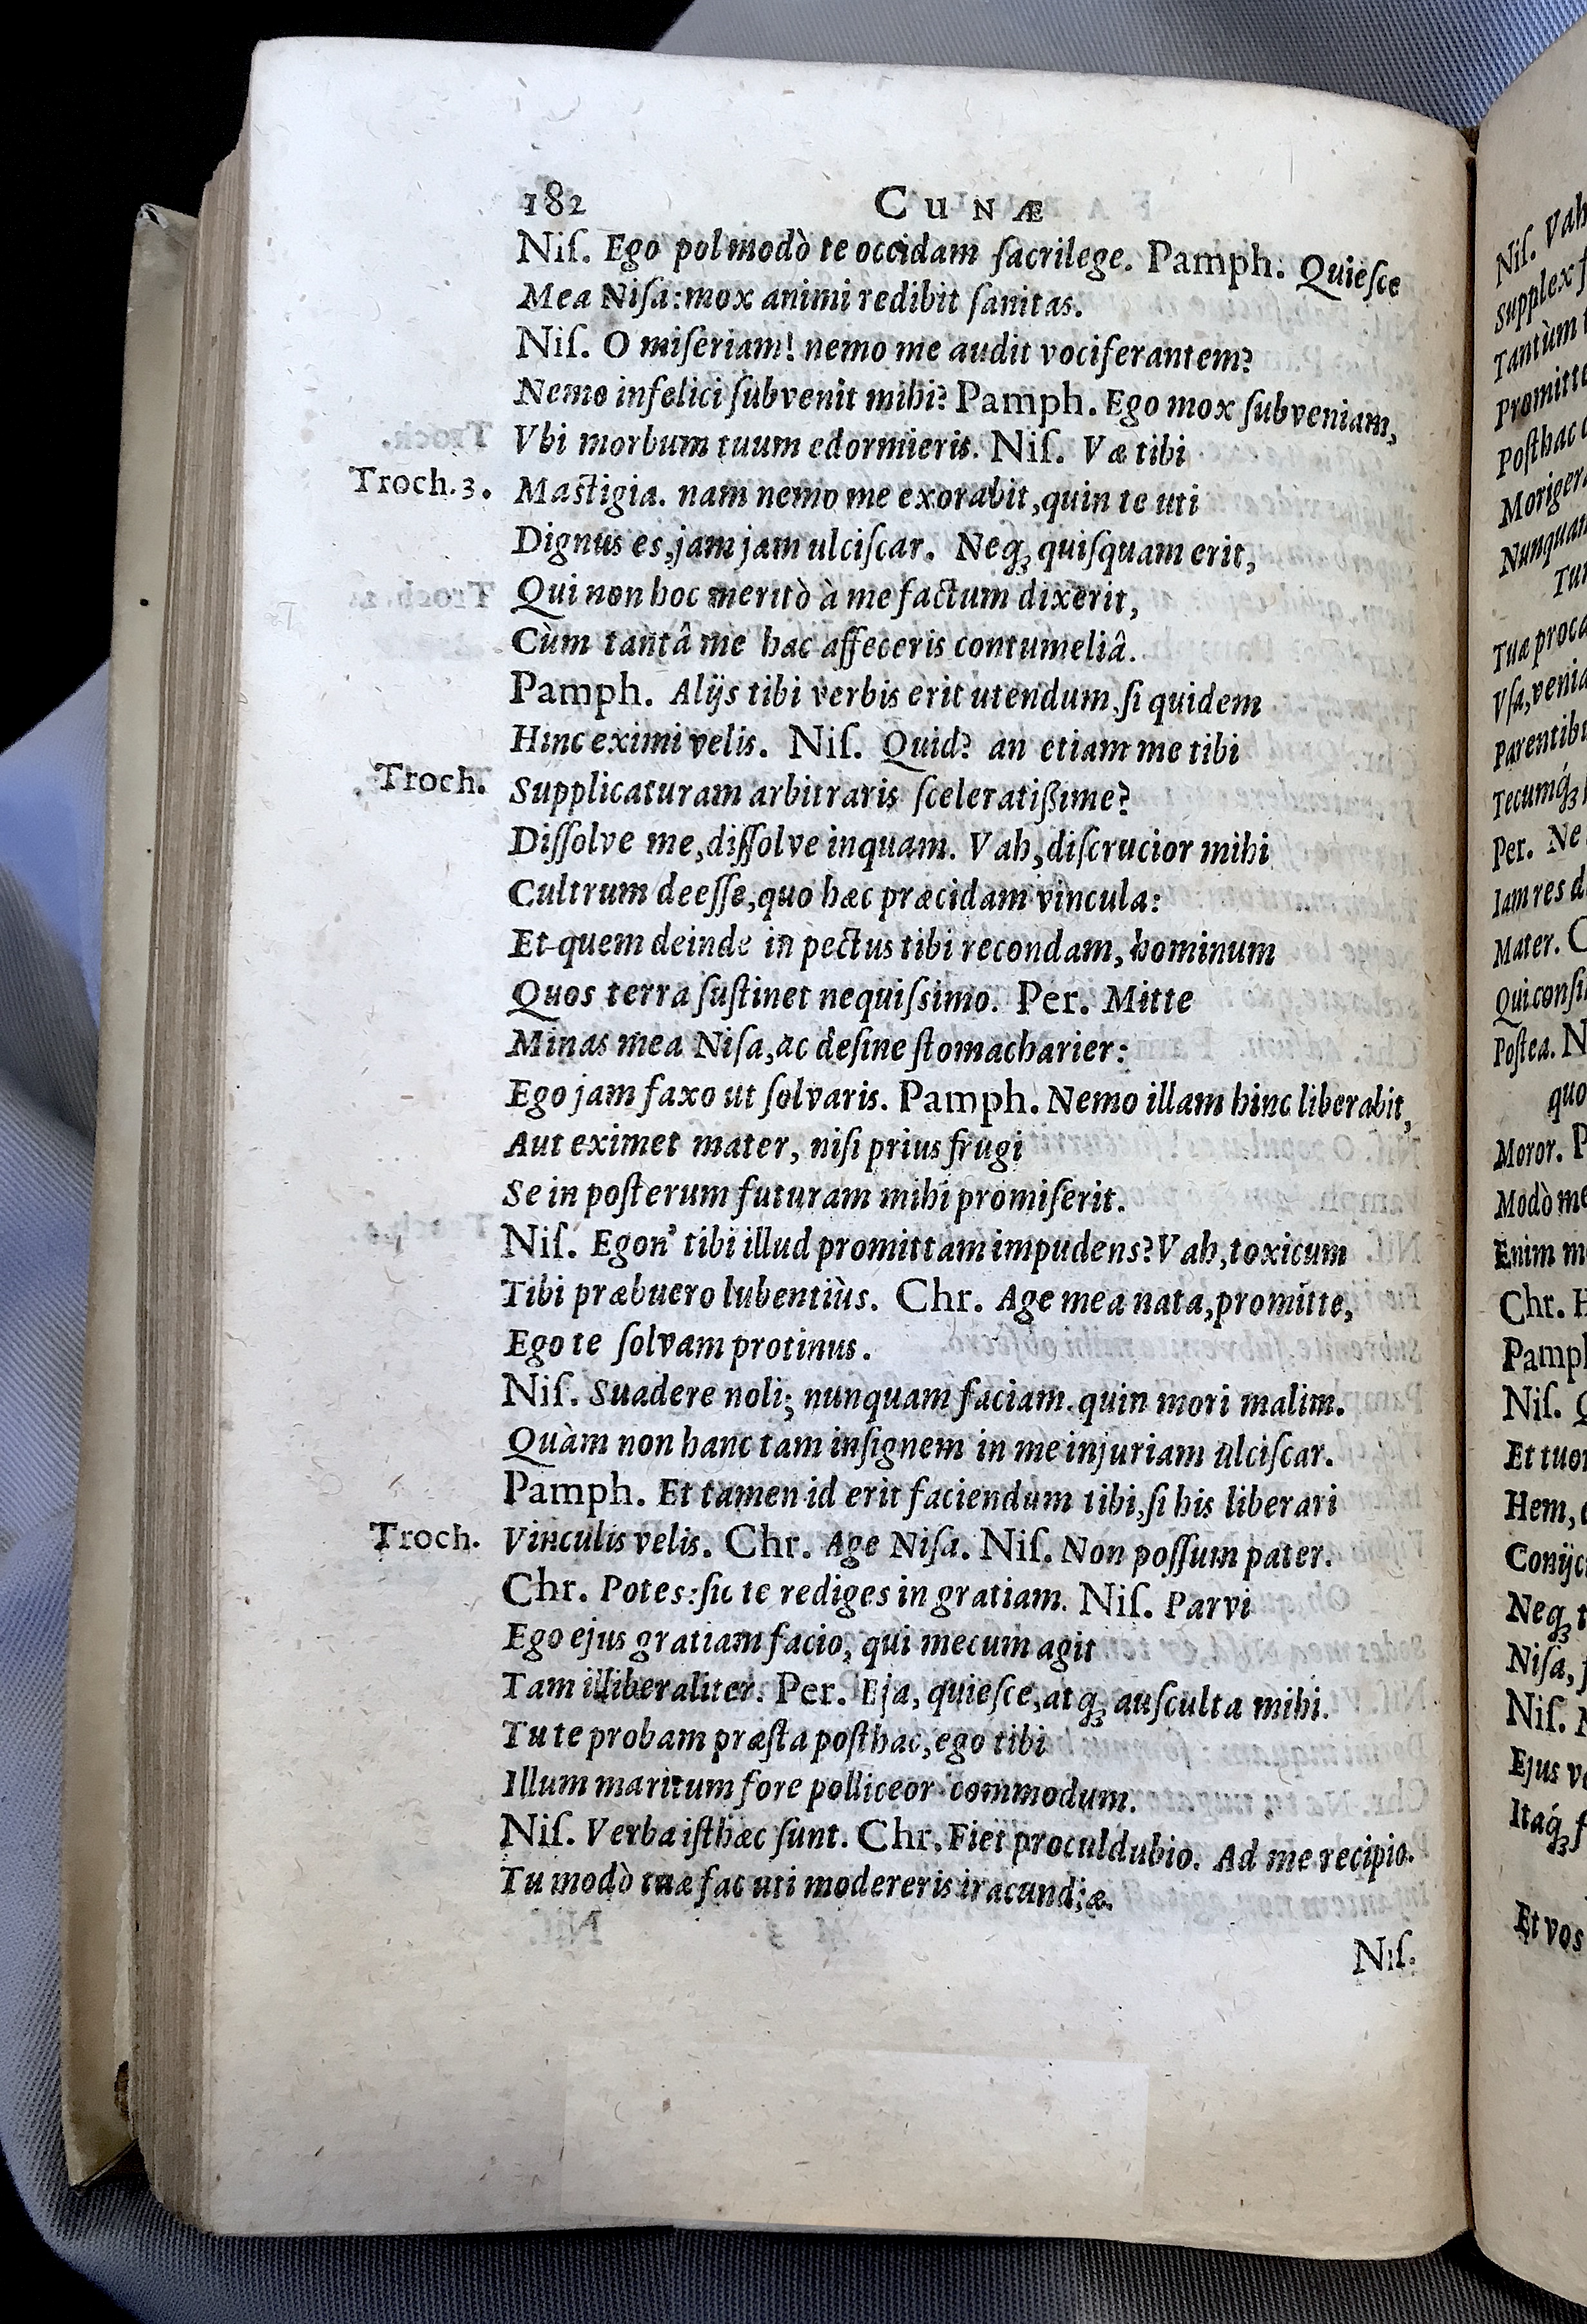 182 CUNÆ
Niſ. Ego pol modò te occidam ſacrilege. Pamph. Quieſce
Mea Niſa: mox animi redibit ſanitas.
Niſ. O miſeriam! nemo me audit vociferantem?
Nemo infelici ſubvenit mihi? Pamph. Ego mox ſubveniam,
Vbi morbum tuum edormieris. Niſ. Væ tibi
Troch. 3. Maſtigia. nam nemo me exorabit, quin te uti
Dignus es, jam jam ulciſcar. Neqꝫ quiſquam erit,
Qui non hoc meritò à me factum dixerit,
Cùm tantâ me hac affeceris contumeliâ.
Pamph. Alijs tibi verbis erit utendum, ſi quidem
Hinc eximi velis. Niſ. Quid? an etiam me tibi
Troch. Supplicaturam arbitraris ſceleratißime?
Diſſolve me, diſſolve inquam. Vah, diſcrucior mihi
Cultrum deeſſe, quo hæc præcidam vincula:
Et quem deinde in pectus tibi recondam, hominum
Quos terra ſuſtinet nequiſsimo. Per. Mitte
Minas mea Niſa, ac deſine ſtomacharier:
Ego jam faxo ut ſolvaris. Pamph. Nemo illam hinc liberabit,
Aut eximet mater, niſi prius frugi
Se in poſterum futuram mihi promiſerit.
Niſ. Egon' tibi illud promittam impudens? Vah, toxicum
Tibi præbuero lubentiùs. Chr. Age mea nata, promitte,
Ego te ſolvam protinus.
Niſ. Suadere noli; nunquam faciam. quin mori malim.
Quàm non hanc tam inſignem in me injuriam ulciſcar.
Pamph. Et tamen id erit faciendum tibi, ſi his liberari
Troch. Vinculis velis. Chr. Age Niſa. Niſ. Non poſſum pater.
Chr. Potes: ſic te rediges in gratiam. Niſ. Parvi
Ego ejus gratiam facio, qui mecum agit
Tam illiberaliter. Per. Eja, quieſce, atqꝫ auſculta mihi.
Tu te probam præſta poſthac, ego tibi
Illum maritum fore polliceor commodum.
Niſ. Verba iſthæc ſunt. Chr. Fiet proculdubio. Ad me recipio.
Tu modò tuæ fac uti modereris iracundiæ.
Niſ.